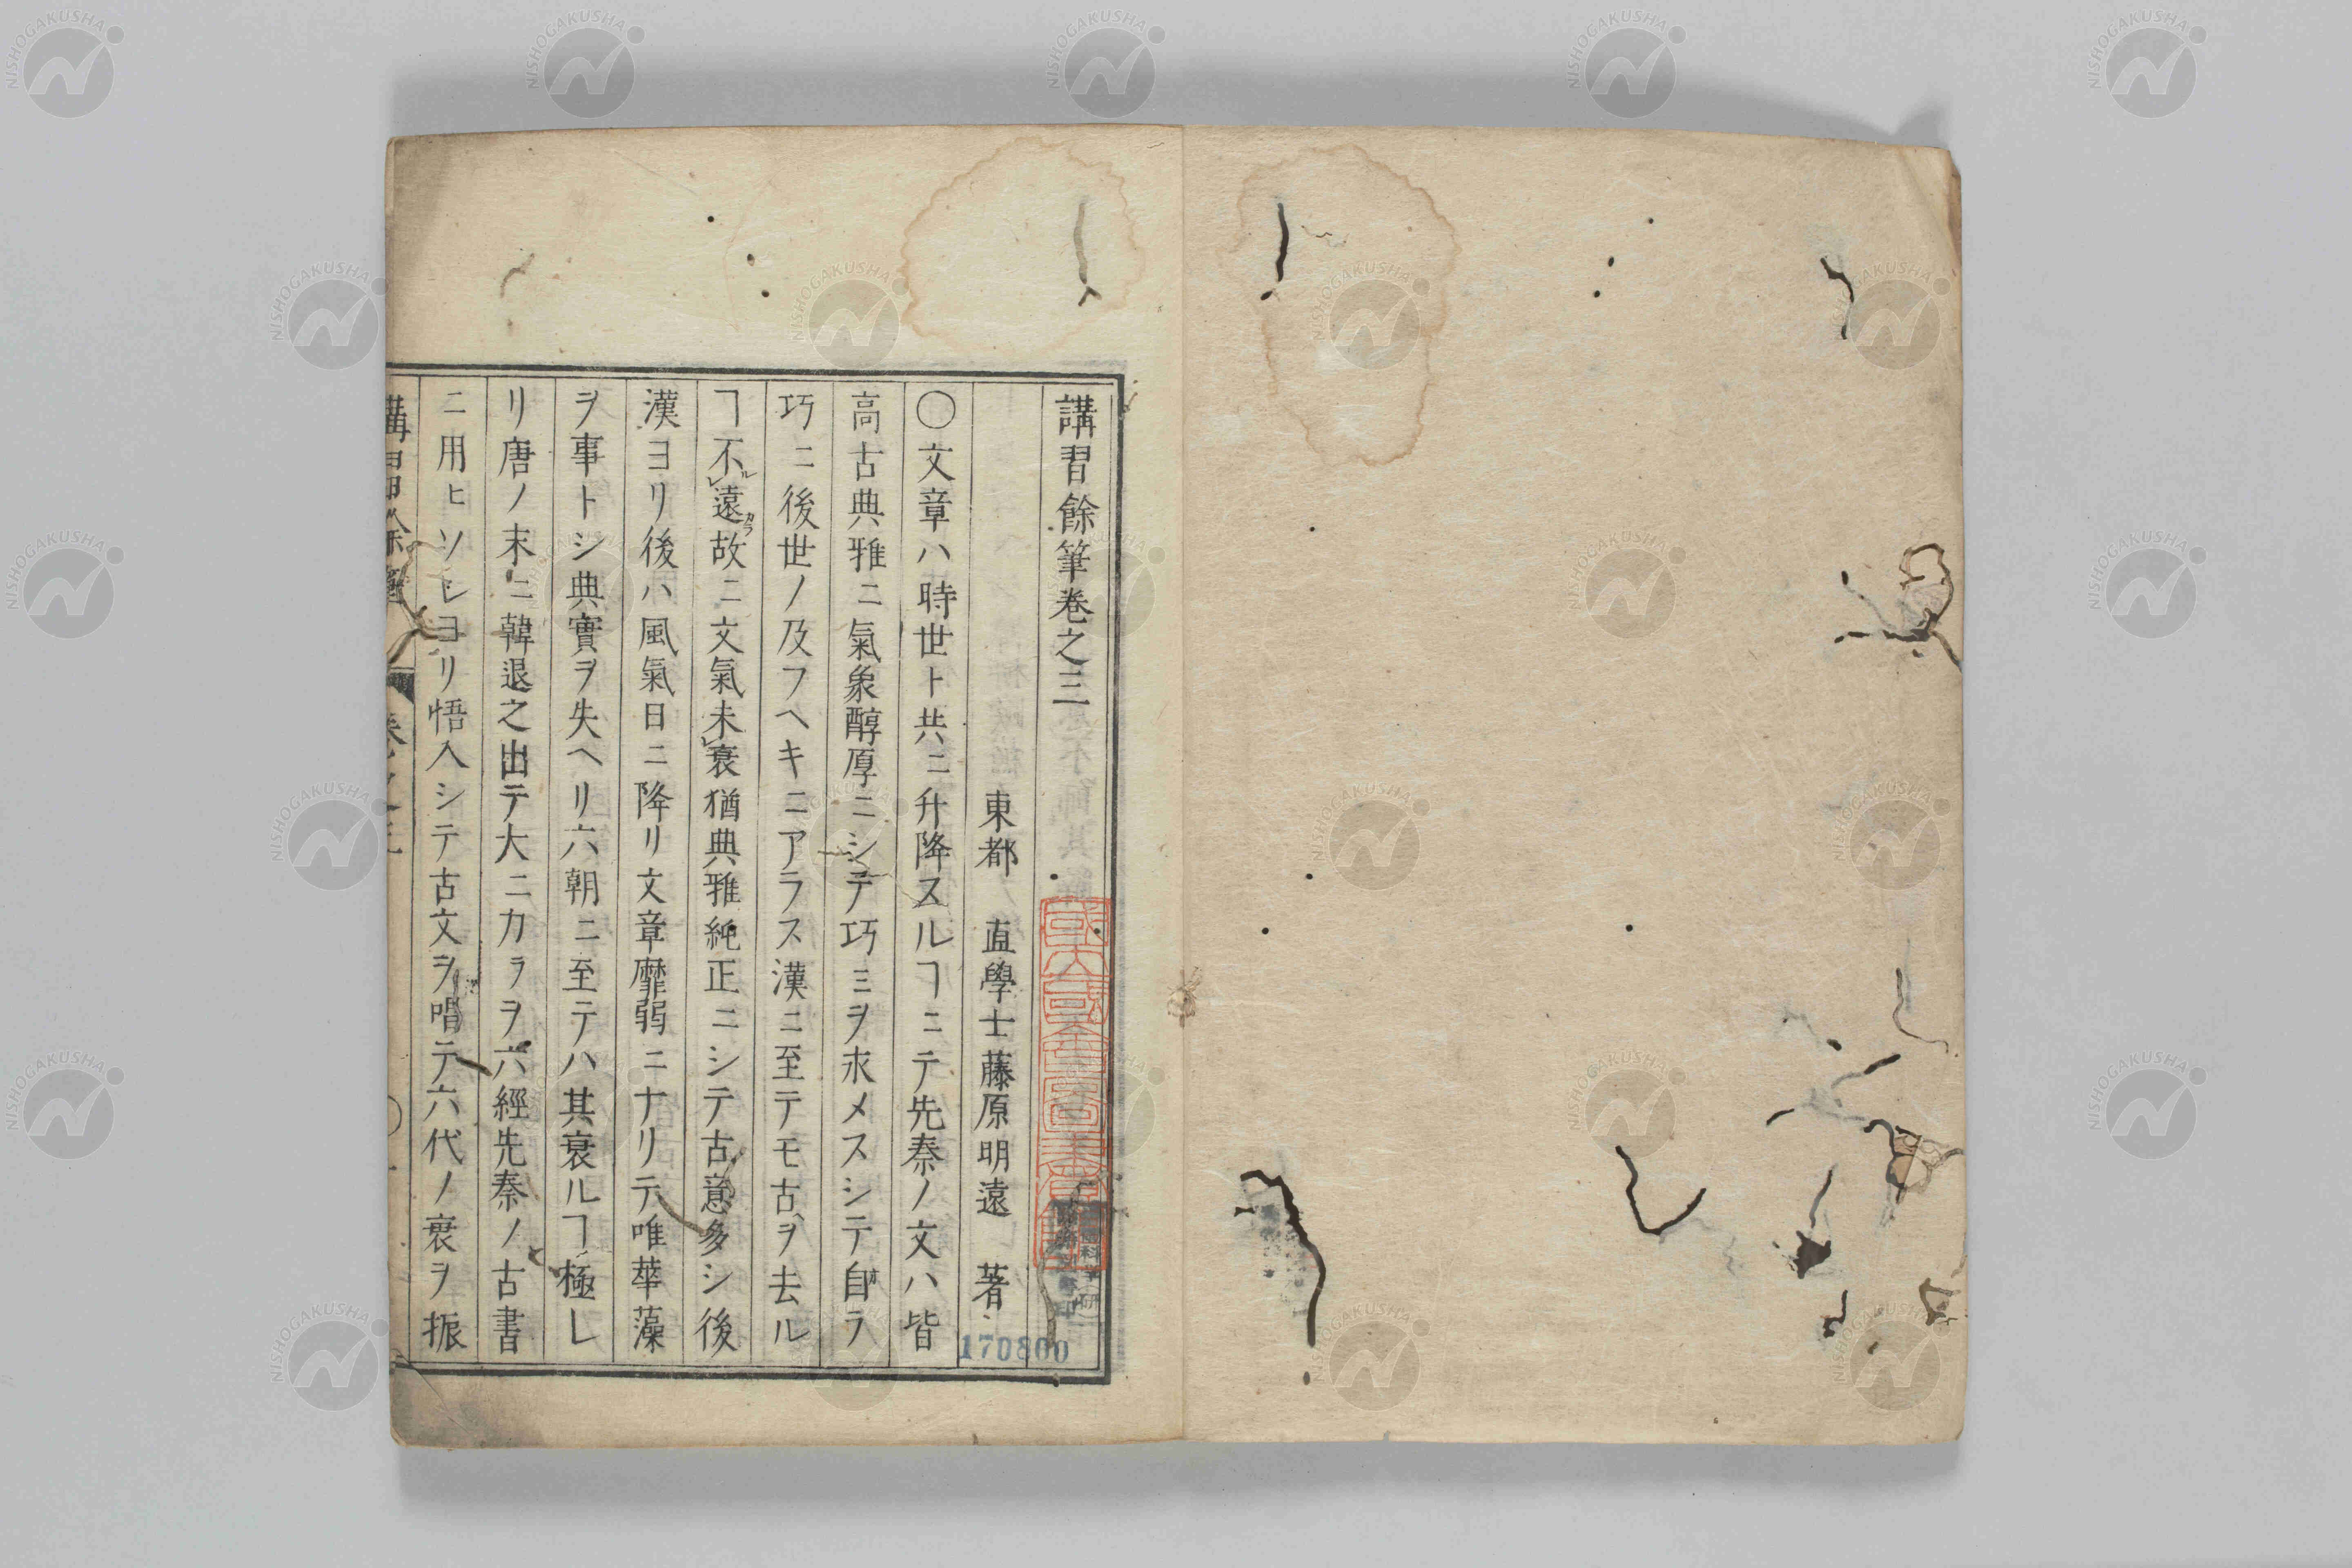 講習餘筆卷之三
東都 直學士藤原明遠 著
〇文章ハ時世ト共ニ升降スルヿニテ先秦ノ文ハ皆
高古典雅ニ氣象醇厚ニシテ巧ミヲ求メスシテ自ラ
巧ニ後世ノ及フヘキニアラス漢ニ至テモ古ヲ去ル
ヿ不ルレ遠カラ故ニ文氣未レ衰猶典雅純正ニシテ古意多シ後
漢ヨリ後ハ風氣日ニ降リ文章靡弱ニナリテ唯華藻
ヲ事トシ典實ヲ失ヘリ六朝ニ至テハ其衰ルヿ極レ
リ唐ノ末ニ韓退之出テ大ニ力ラヲ六經先秦ノ古書
ニ用ヒソレヨリ悟入シテ古文ヲ唱テ六代ノ衰ヲ振
講習餘筆 卷之三
170800
NISHOGAKUSHA